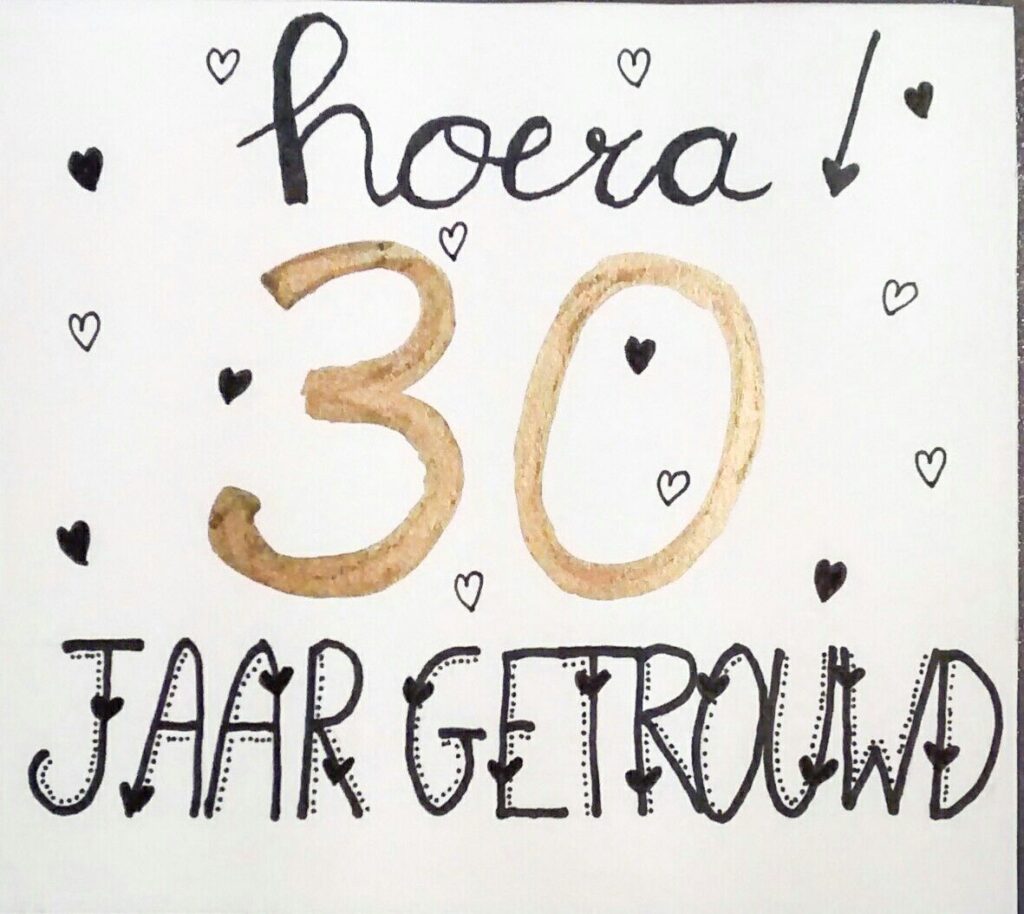 hoera!
30
JAAR GETROUWD